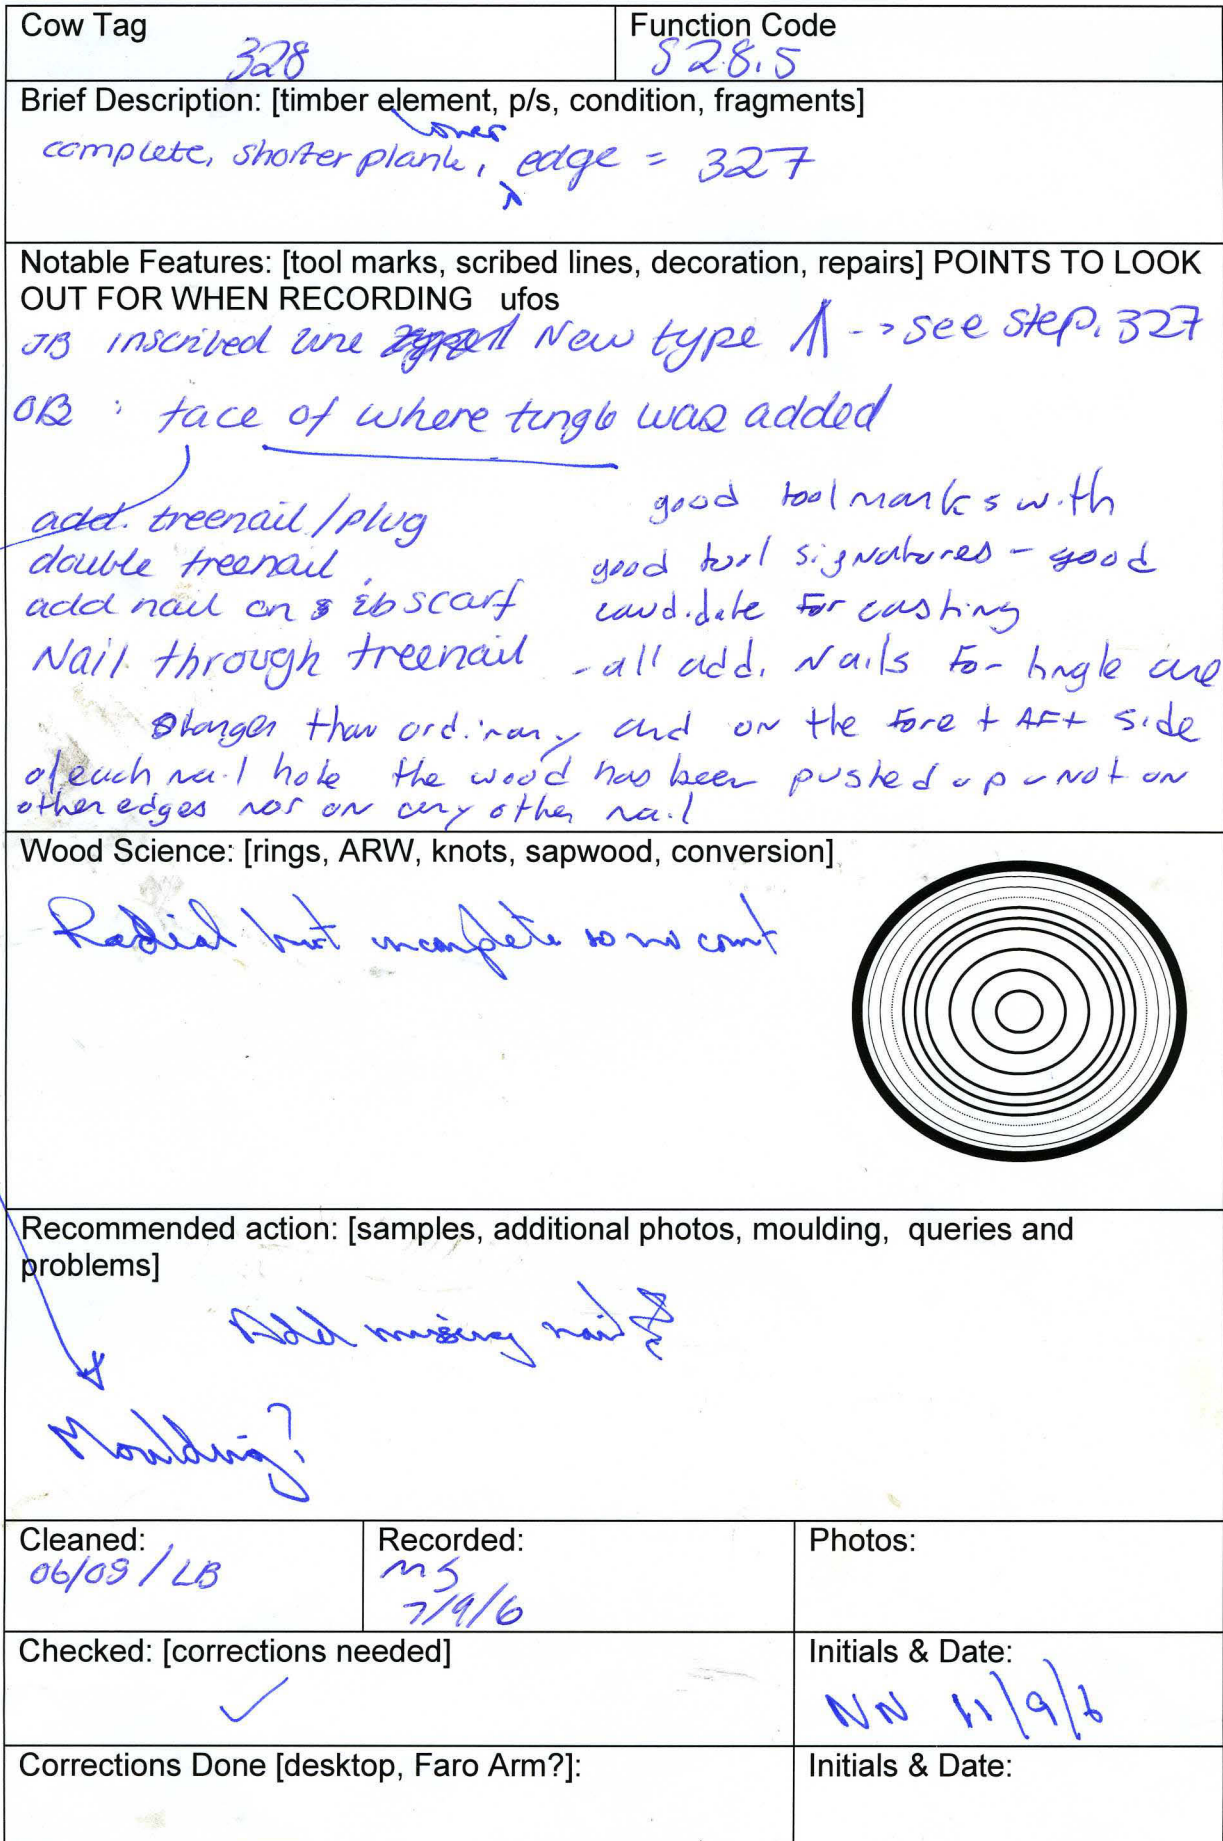 Cow Tag
328
Function Code
S28.5
Brief Description: [timber element, p/s, condition, fragments]
lower
complete, shorter plank, edge = 327
Notable Features: [tool marks, scribed lines, decoration, repairs] POINTS TO LOOK
OUT FOR WHEN RECORDING ufos
JB inscribed line New type -> see step. 327
OB : face of where tingle was added
add. treenail/plug
double treenail
add nail on ib scarf
Nail through treenail
good toolmarks with
good tool signatures - good
candidate for casting
- all add. Nails for tingle are
longer than ordinary and on the fore + AFt side
of each nail hole the wood has been pushed up - not on
other edges nor on any other nail
Wood Science: [rings, ARW, knots, sapwood, conversion]
Radial but incomplete so no count
Recommended action: [samples, additional photos, moulding, queries and
problems]
Add missing nail
Moulding?
Cleaned:
06/09 / LB
Recorded:
MS
7/9/6
Photos:
Checked: [corrections needed]
✓
Initials & Date:
NN 11/9/6
Corrections Done [desktop, Faro Arm?]:
Initials & Date: